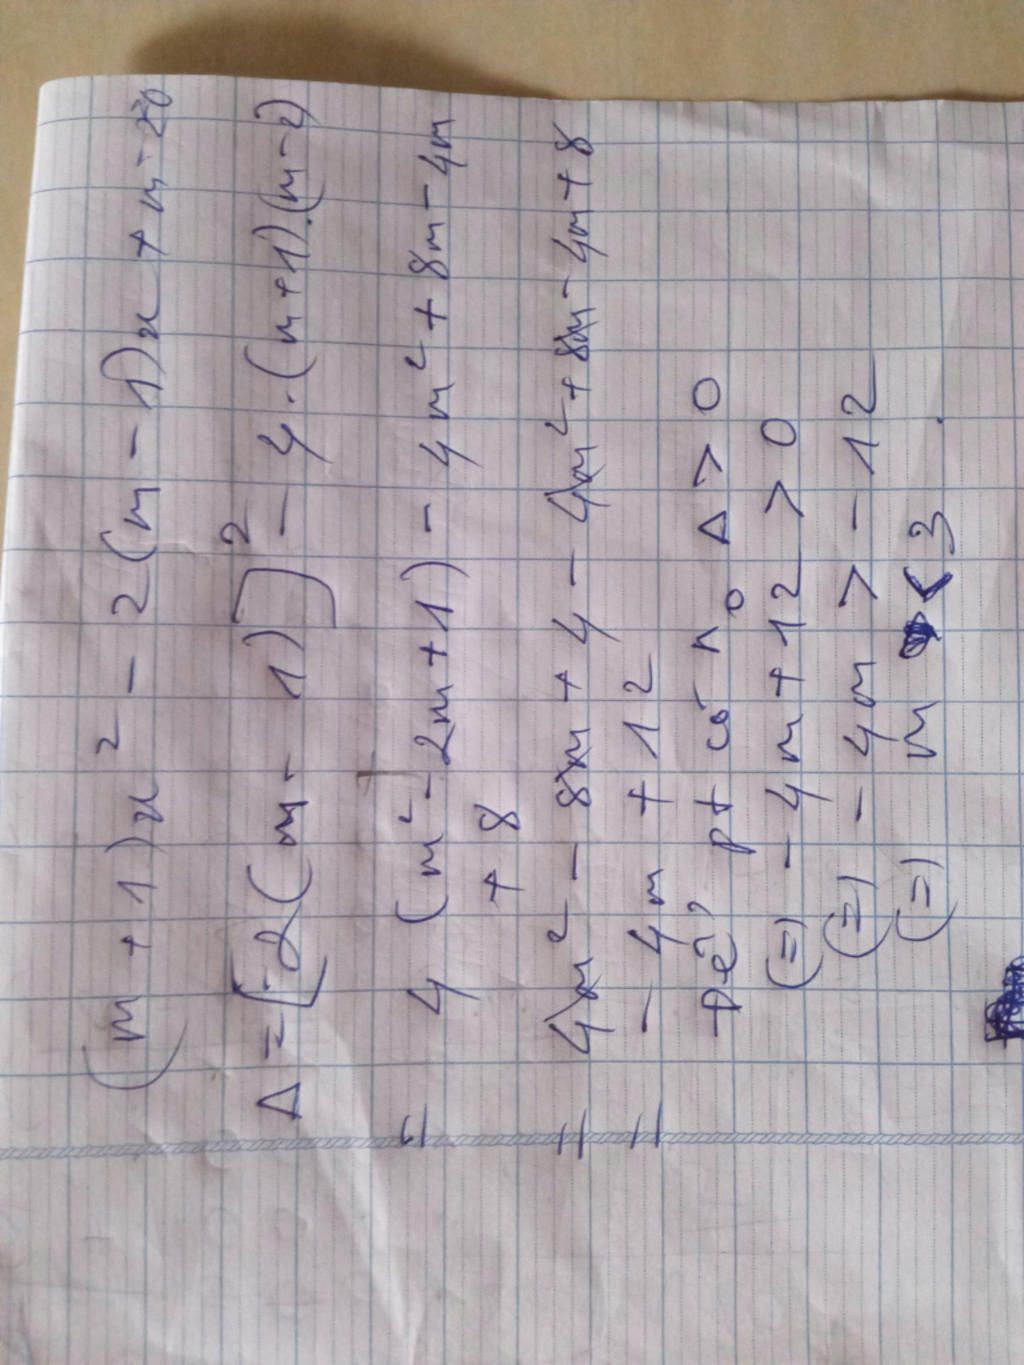 (m + 1)x² - 2(m - 1)x + m - 2=0
Δ = [-2(m - 1)]² - 4.(m+1).(m-2)
= 4 (m² - 2m + 1) - 4m² + 8m - 4m
+ 8
= 4m² - 8m + 4 - 4m² + 8m - 4m + 8
= - 4m + 12
Để pt có n₀ Δ > 0
(=) - 4m + 12 > 0
(=) - 4m > - 12
(=) m < 3 .